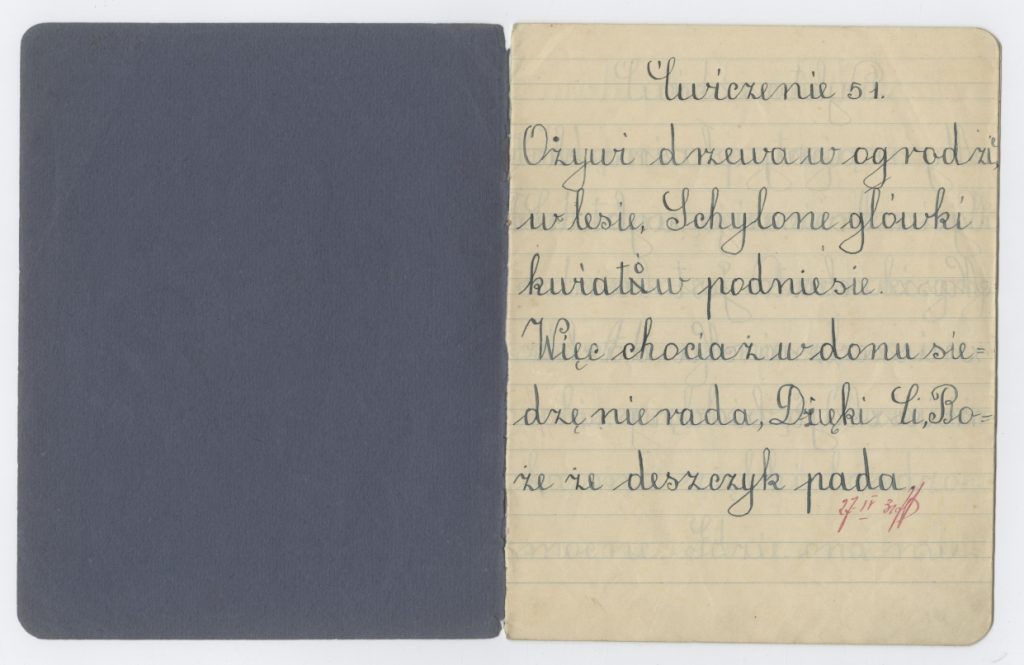 Ćwiczenie 51.
Ożywi drzewa w ogrodzi,
w lesie, Schylone główki
kwiatów podniesie.
Więc chociaż w donu sie=
dzę nierada, Dzięki Ci, Bo=
że że deszczyk pada.
27 IV